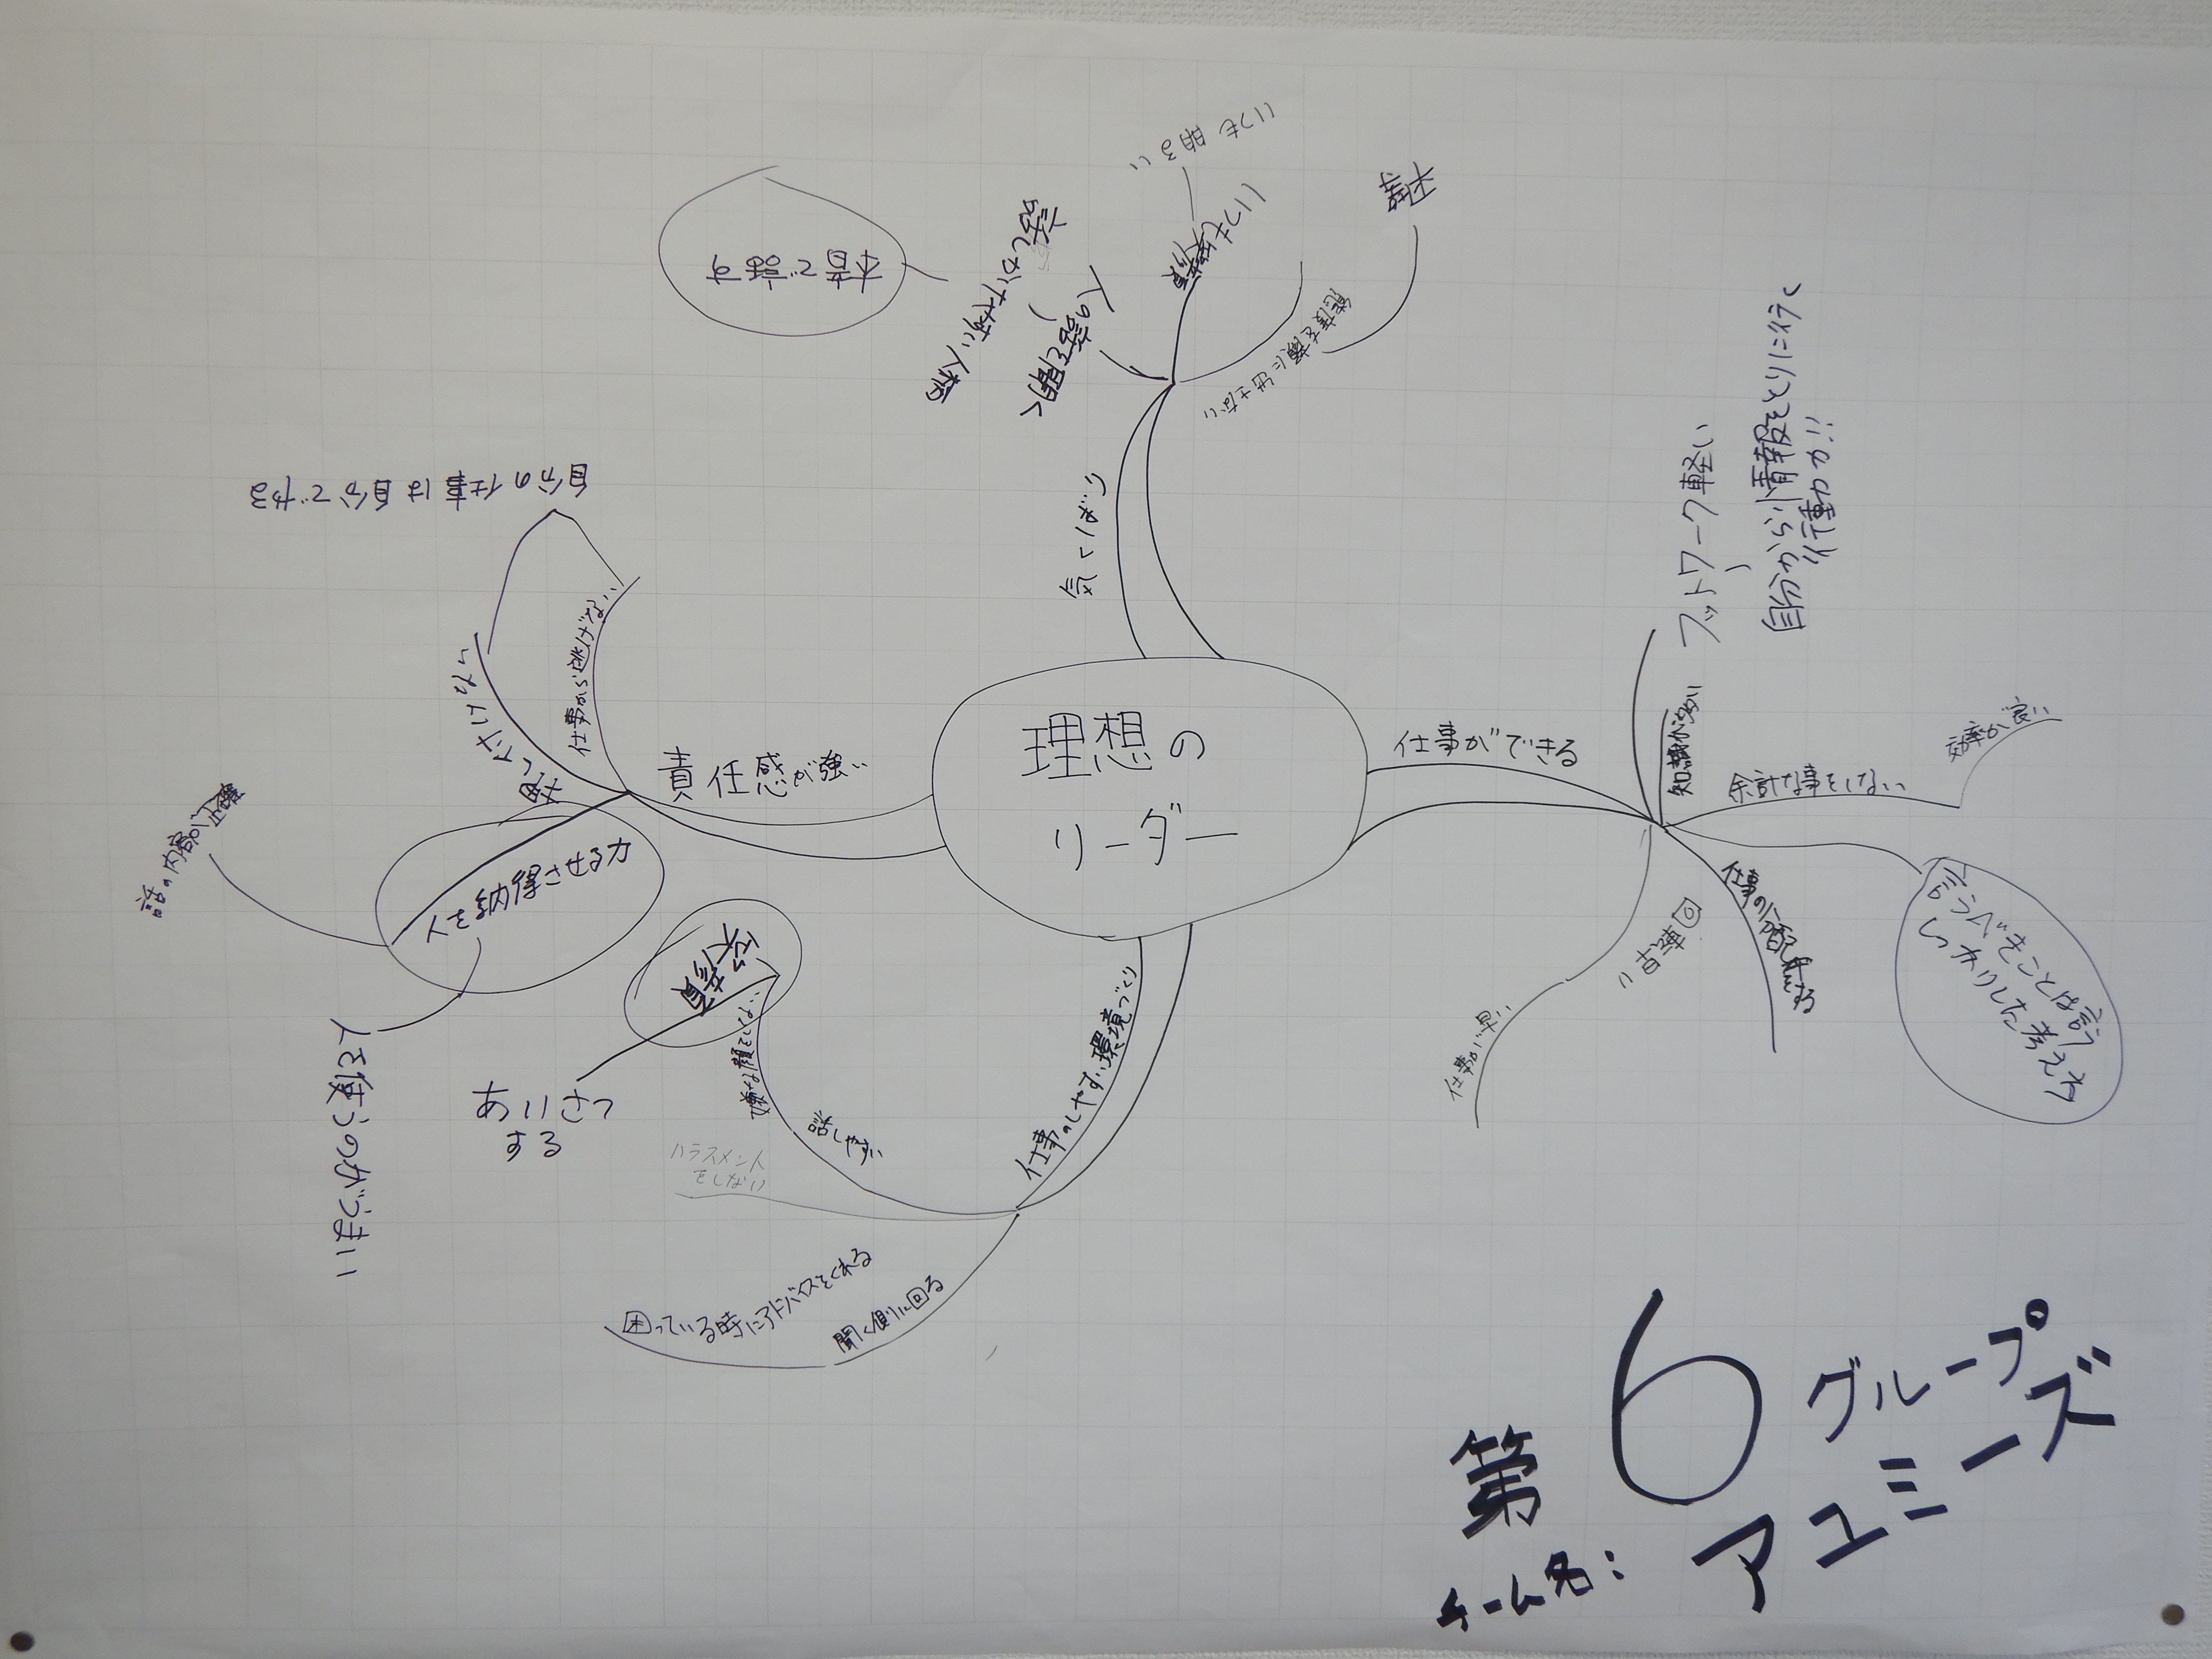 理想の
リーダー
気くばり
人の話を聞く
話しかけやすい人柄
本音で話す
いつも笑顔
いつも明るい
態度を顔に出さない
平等
仕事ができる
フットワーク軽い
自分から情報をとりに行く
行動力!!
知識が多い
余計な事をしない
効率が良い
言うべきことは言う
しっかりした考え方
仕事の分配をする
仕事が早い
仕事のしやすい環境づくり
話しやすい
嫌な顔をしない
笑顔
あいさつ
する
ハラスメント
をしない
聞く側に回る
困っている時にアドバイスをくれる
責任感が強い
仕事から逃げない
押し付けない
自分の仕事は自分でやる
人を納得させる力
話の内容が正確
人を使うのがうまい
第6グループ
チーム名:アユミーズ